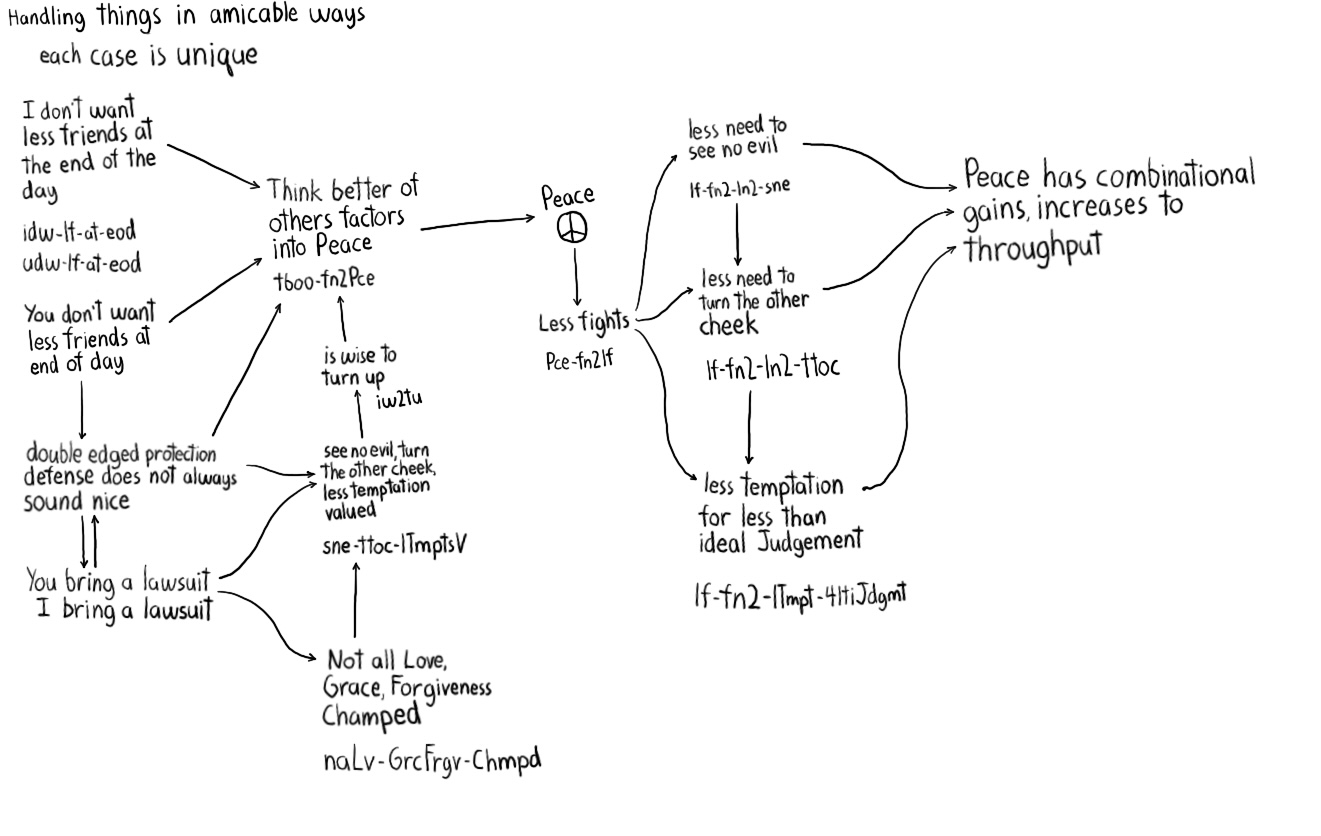 Handling things in amicable ways
each case is unique
I don't want
less friends at
the end of the
day
idw-lf-at-eod
udw-lf-at-eod
You don't want
less friends at
end of day
double edged protection
defense does not always
sound nice
You bring a lawsuit
I bring a lawsuit
Think better of
others factors
into Peace
tboo-fn2Pce
is wise to
turn up
iw2tu
see no evil, turn
the other cheek,
less temptation
valued
sne-ttoc-lTmptsV
Not all Love,
Grace, Forgiveness
Champed
naLv-GrcFrgv-Chmpd
Peace
Less fights
Pce-fn2lf
less need to
see no evil
lf-fn2-ln2-sne
less need to
turn the other
cheek
lf-fn2-ln2-ttoc
less temptation
for less than
ideal Judgement
lf-fn2-lTmpt-4ltiJdgmt
Peace has combinational
gains, increases to
throughput